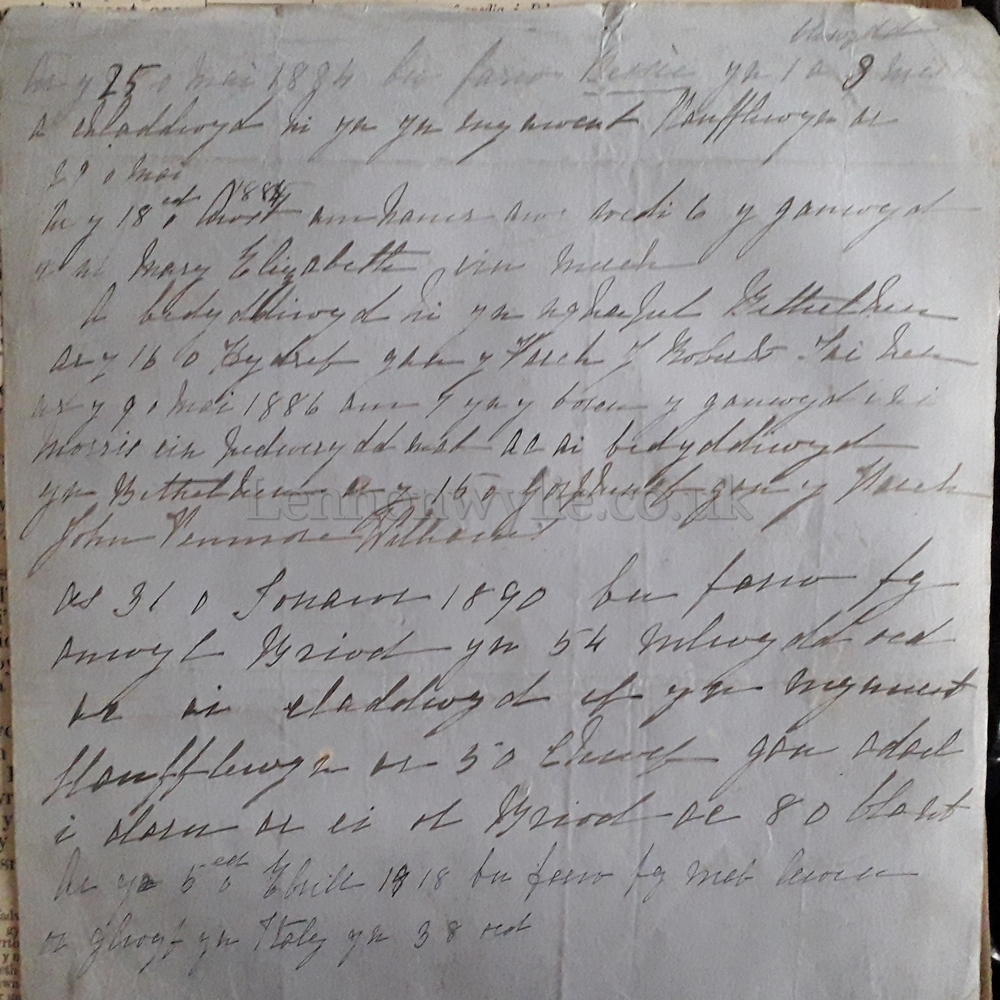 blwydd
Ar y 25 o Mai 1884 bu farw Bessie yn 1 a 3 mis
a chladdwyd hi yn yn mynwent Llanfflewyn ar
29 o Mai
Ar y 18 ed o Awst 1884 am haner awr wedi 6 y ganwyd
i ni Mary Elizabeth ein merch
A bedyddiwyd hi yn nghapel Bethel hen
ar y 16 o Hydref gan y Parch J Roberts Tai hen
ar y 9 o Mai 1886 am 9 yn y boreu y ganwyd i ni
Morris ein mab ac ai bedyddiwyd
yn Bethel hen ar y 15 o gan y Parch
John Penmore Williams
Lennonwylie.co.uk
ar 31 o Ionawr 1890 bu farw fy
anwyl Briod yn 54 mlwydd oed
ac ai claddwyd ef yn mynwent
Llanfflewyn ar 5 o Chwef gan adael
i alaru ar ei ol Briod ac 8 o blant
Ar y 5 ed o Ebrill 1918 bu farw fy mab
yn Italy yn 38 oed